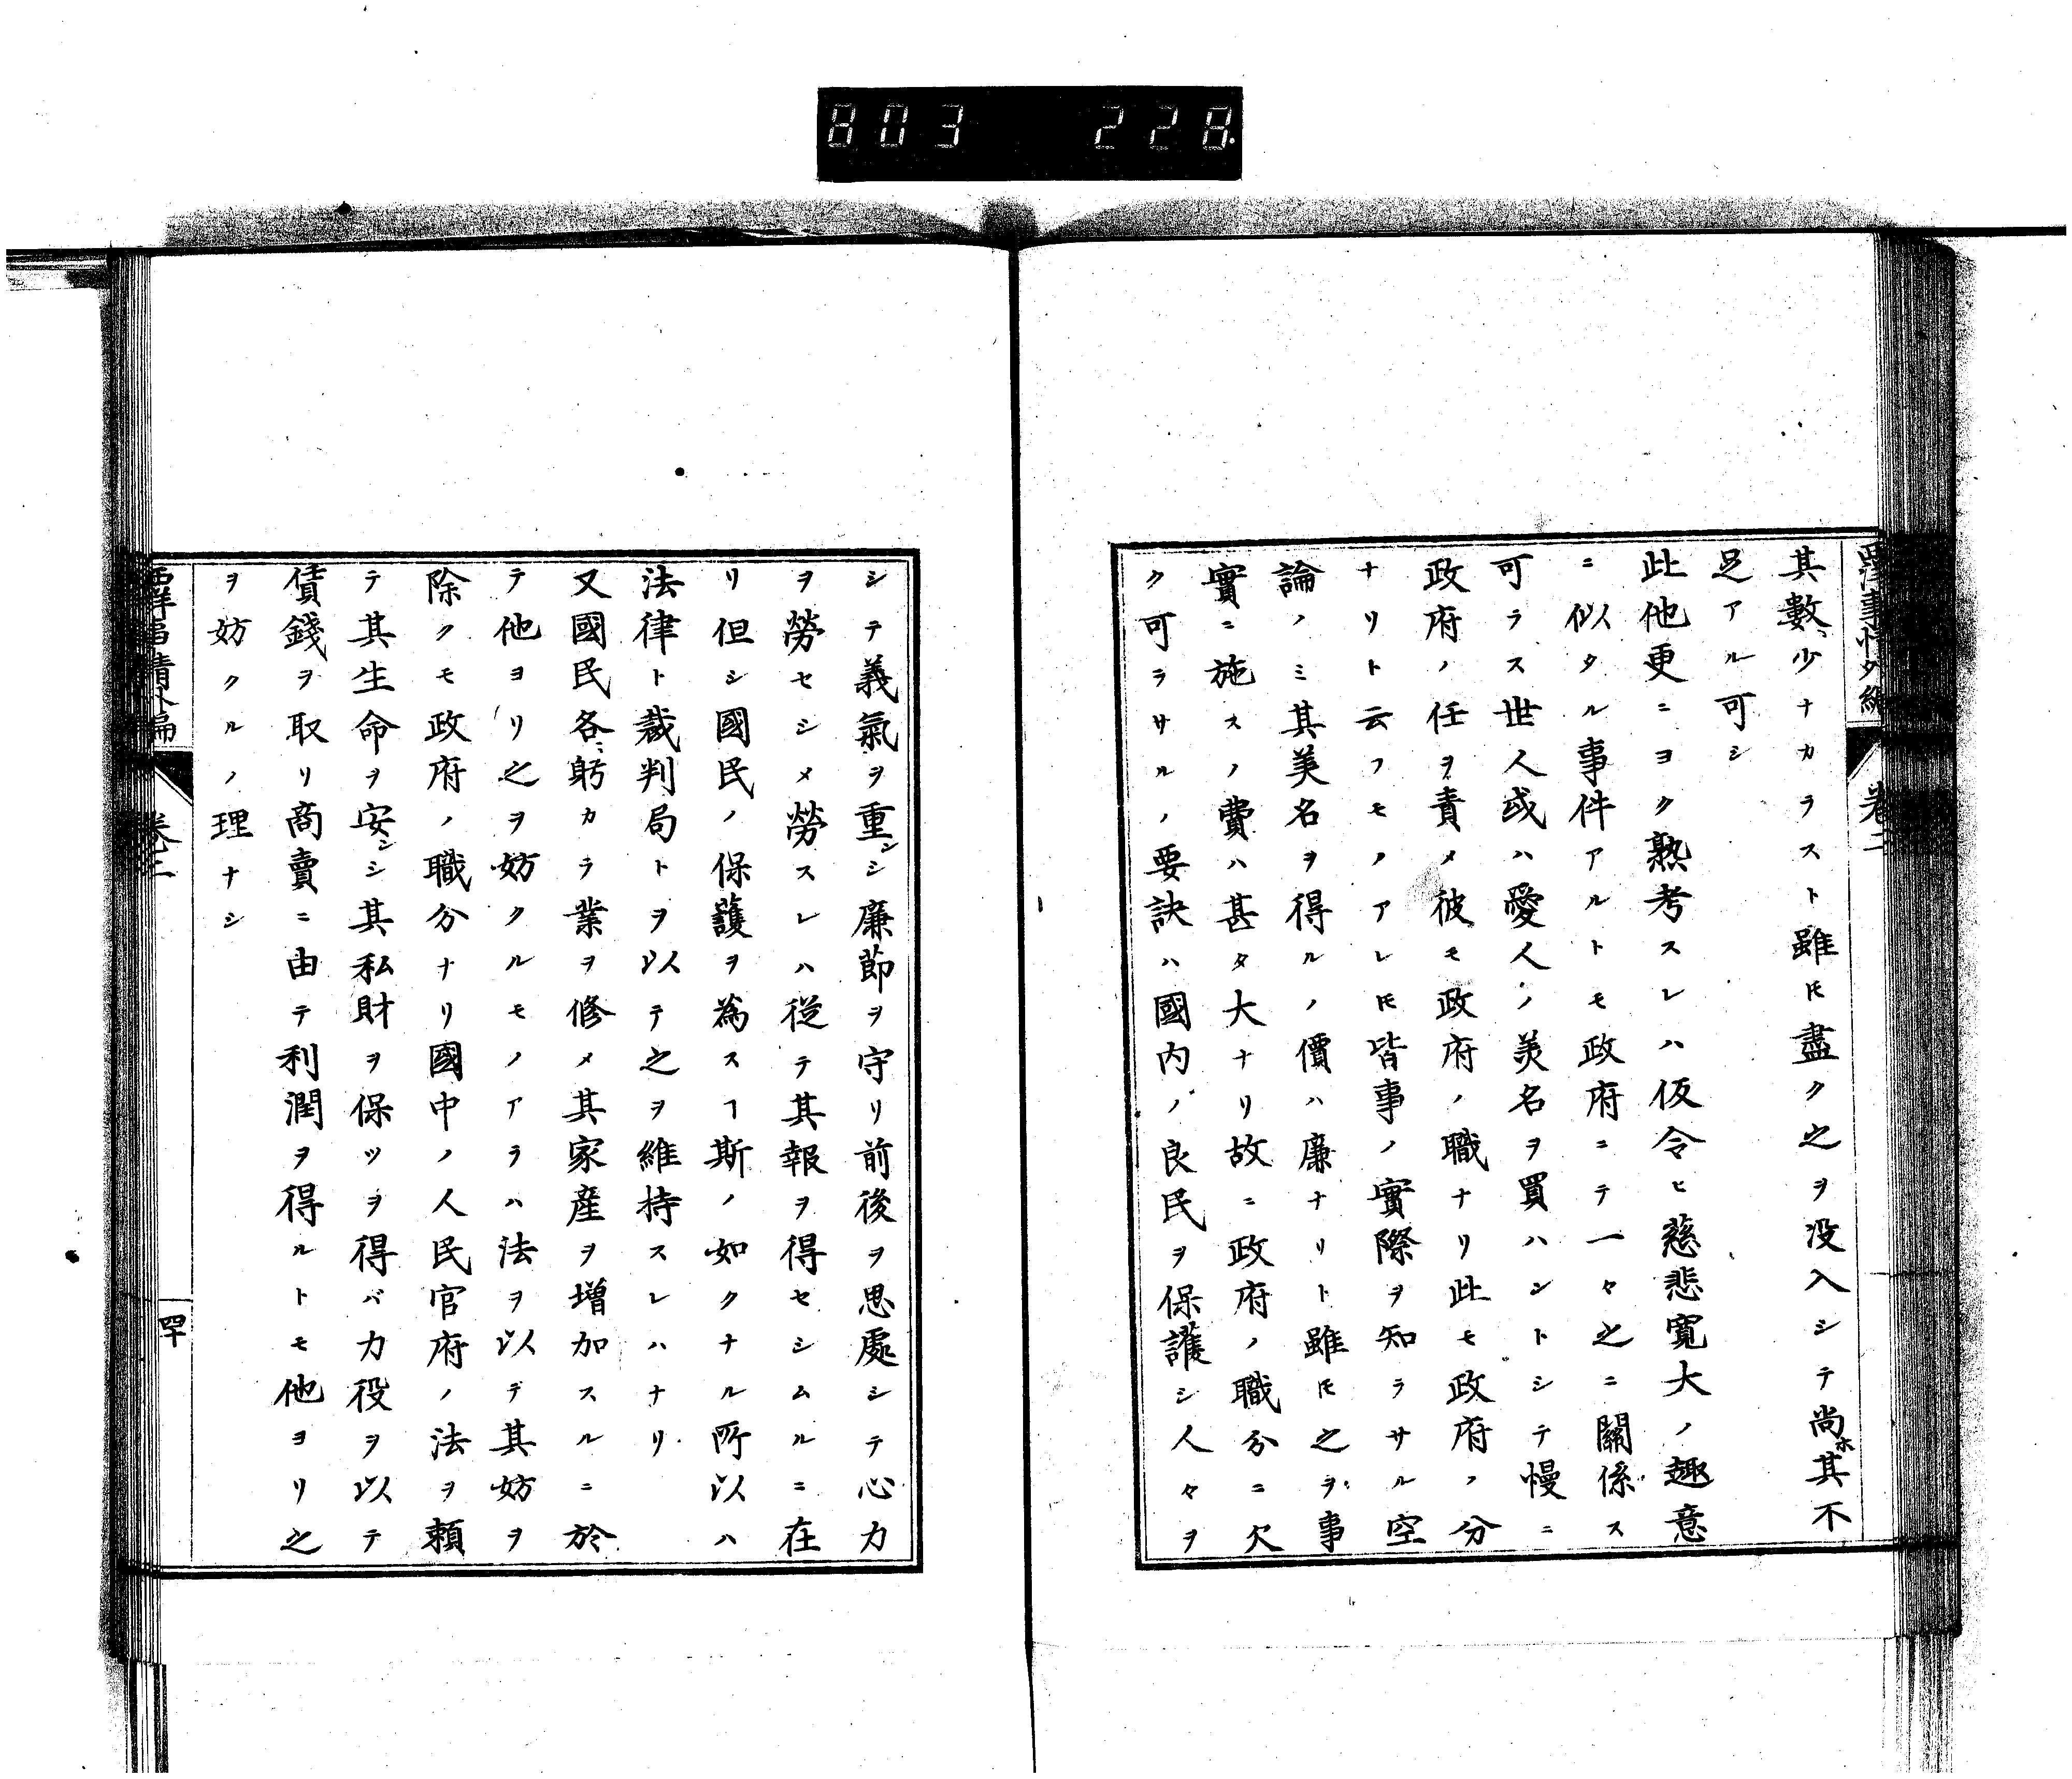 803 228
西洋事情外編 卷二
其數少ナカラスト雖𪜈盡ク之ヲ沒入シテ尚ホ其不
足アル可シ
此他更ニヨク熟考スレハ仮令ヒ慈悲寛大ノ趣意
ニ似タル事件アルトモ政府ニテ一々之ニ關係ス
可ラス世人或ハ愛人ノ美名ヲ買ハントシテ慢ニ
政府ノ任ヲ責メ彼モ政府ノ職ナリ此モ政府ノ分
ナリト云フモノアレ𪜈皆事ノ實際ヲ知ラサル空
論ノミ其美名ヲ得ルノ價ハ廉ナリト雖𪜈之ヲ事
實ニ施スノ費ハ甚タ大ナリ故ニ政府ノ職分ニ欠
ク可ラサルノ要訣ハ國内ノ良民ヲ保護シ人々ヲ
シテ義氣ヲ重ンシ廉節ヲ守リ前後ヲ思慮シテ心力
ヲ勞セシメ勞スレハ從テ其報ヲ得セシムルニ在
リ但シ國民ノ保護ヲ為スヿ斯ノ如クナル所以ハ
法律ト裁判局トヲ以テ之ヲ維持スレハナリ
又國民各躬カラ業ヲ修メ其家産ヲ増加スルニ於
テ他ヨリ之ヲ妨クルモノアラハ法ヲ以テ其妨ヲ
除クモ政府ノ職分ナリ國中ノ人民官府ノ法ヲ頼
テ其生命ヲ安ンシ其私財ヲ保ツヲ得バ力役ヲ以テ
債錢ヲ取リ商賣ニ由テ利潤ヲ得ルトモ他ヨリ之
ヲ妨クルノ理ナシ
西洋事情外編 卷二 四十